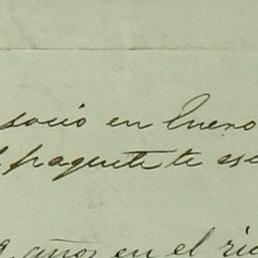 socio en Queno
paquete te es
años en el ri